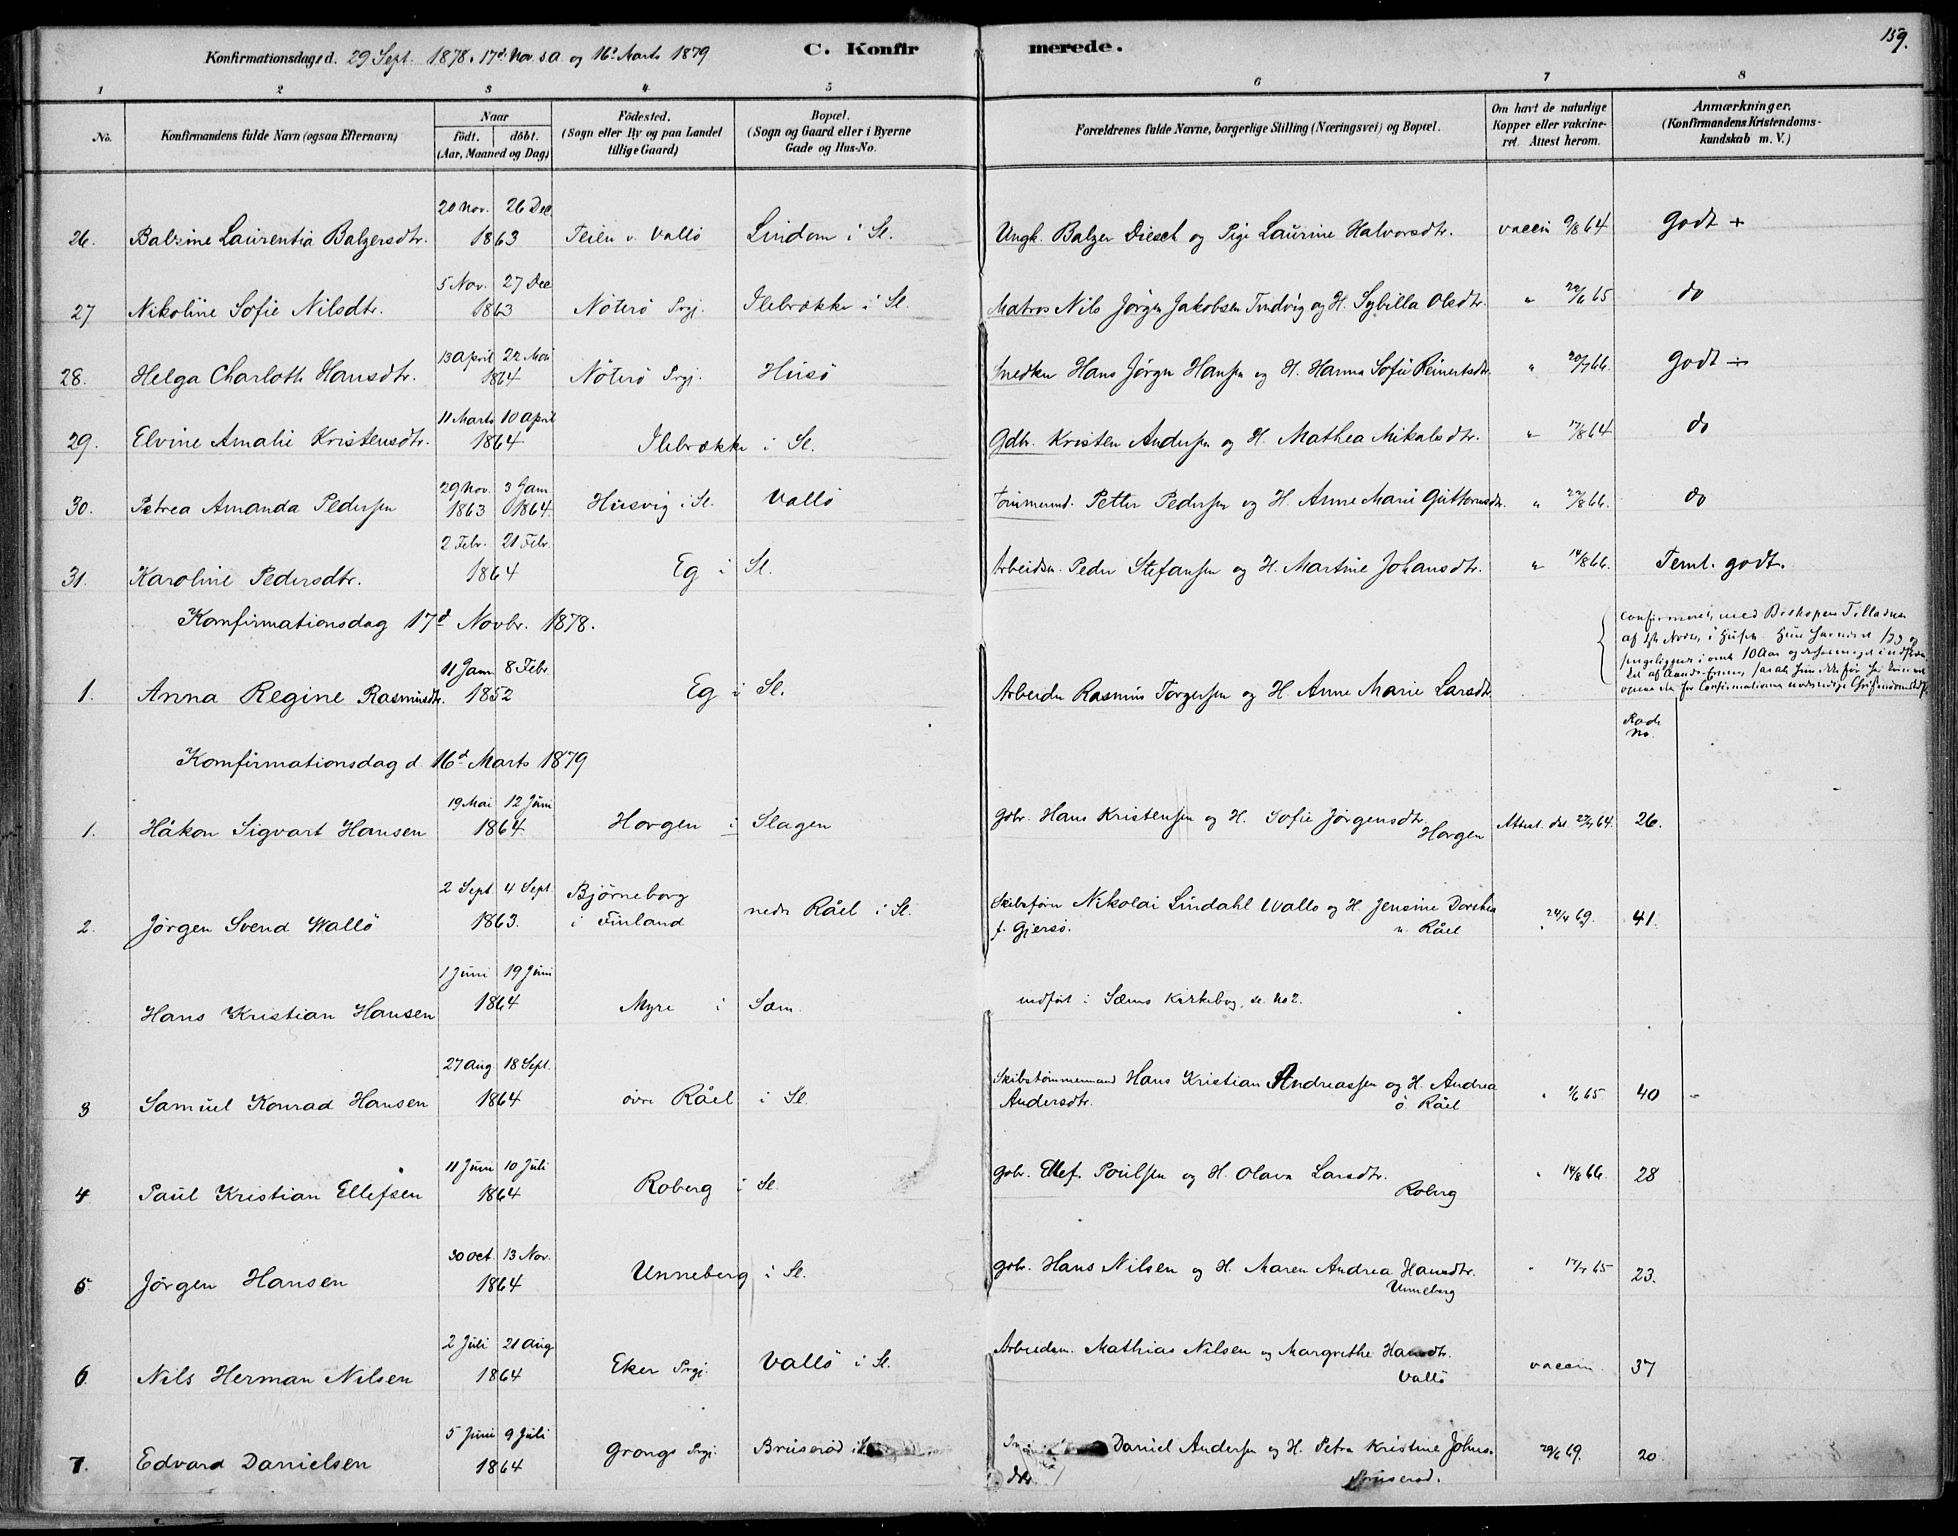 159.
Konfirmationsdage d. 29 Sept. 1878. 17d Nov. s.a. og 16d Marts 1879
C. Konfirmerede.
1 2 3 4 5 6 7 8
No. Konfirmandens fulde Navn (ogsaa Efternavn) Naar födt. döbt. (Aar, Maaned og Dag) Födested. (Sogn eller By og paa Landet tillige Gaard) Bopæl. (Sogn og Gaard eller i Byerne Gade og Hus-No. Forældrenes fulde Navne, borgerlige Stilling (Næringsvei) og Bopæl. Om havt de naturlige Kopper eller vakcineret. Attest herom. Anmærkninger. (Konfirmandens Kristendomskundskab m. V.)
26. Balzine Laurentia Balzersdtr. 20 Nov. 26 Dec. 1863 Teien v. Vallö Lindom i Sl. Ungk. Balzer Diesch og Pige Laurine Halvorsdtr. vaccin 9/8 64 Godt +
27 Nikoline Sofie Nilsdtr. 5 Nov. 27 Dec 1863 Nöterö Prgj. Ilebrække i Sl. Matros Nils Jörgen Jakobsen Tindvig og H. Sybilla Olsdtr. " 22/6 65 do
28. Helga Charloth Hansdtr. 13 April 22 Mai 1864 Nöterö Prgj. Husö Snedker Hans Jörgn Hansen og H. Hanna Sofie Reinertsdtr. " 20/7 66. Godt ÷
29. Elvine Amalie Kristensdtr. 11 Marts 10 April 1864 Ilebrække i Sl. Gdbr. Kristen Andersen og H. Mathea Mikalsdtr. " 17/8 64 do
30. Petrea Amanda Pedersen 29 Nov. 1863 3 Jan 1864 Husvig i Sl. Vallö Tömmermd. Petter Pedersen og H. Anne Marie Guttormsdtr. " 22/8 66. do
31. Karoline Pedersdtr. 2 Febr. 21 Febr. 1864 Eg i Sl. Arbeidsm. Peder Stefansen og H. Martine Johansdtr. " 14/8 66. Teml. godt.
Konfirmationsdag 17d Novbr. 1878.
1. Anna Regine Rasmusdtr. 11 Jan 8 Febr. 1852 Eg i Sl. Arbeider Rasmus Torgersen og H. Anne Marie Larsdtr. Confirmeret med Biskopens Tilladelse
Rode No.
Konfirmationsdag d. 16d Marts 1879
1. Håkon Sigvart Hansen 19 Mai 12 Juni 1864 Horgen i Slagen Gdbr. Hans Kristensen og H. Sofie Jörgensdtr. Horgen Attest. dat. 23/7 64. 26.
2. Jörgen Svend Wallö 2 Sept 4 Sept. 1863. Björneborg i Finland nedr Råel i Sl. Skibsförer Nikolai Lindahl Wallö og H. Jensine Dorthea f. Gjersö. n. Råel " 24/4 69. 41.
Hans Kristian Hansen 1 Juni 19 Juni 1864 Myre i Sæm indfört i Sæms Kirkebog, se No 2.
3 Samuel Konrad Hansen 27 Aug 18 Sept. 1864 övre Råel i Sl. Skibstömmermand Hans Kristian Andreassen og H. Andrea Andersdtr. ö. Råel " 1/6 65 40
4 Paul Kristian Ellefsen 11 Juni 10 Juli 1864 Roberg i Sl. Gdbr. Ellef Poulsen og H. Olava Larsdtr. Roberg " 14/8 66. 28
5. Jörgen Hansen 30 Oct. 13 Nov. 1864 Unneberg i Sl. Gdbr. Hans Nilsen og H. Maren Andrea Hansdtr. Unneberg " 17/7 65 23.
6. Nils Herman Nilsen 2 Juli 21 Aug 1864 Eker Prgj. Vallö i Sl. Arbeidsm. Mathias Nilsen og Margrethe Hansdtr. Vallö vaccin. 37
7. Edvard Danielsen 5 Juni 9 Juli 1864 Grongs Prgj Bruseröd i Daniel Andersen og H. Petra Kristine Johns.dtr. Bruseröd. 29/6 69. 20